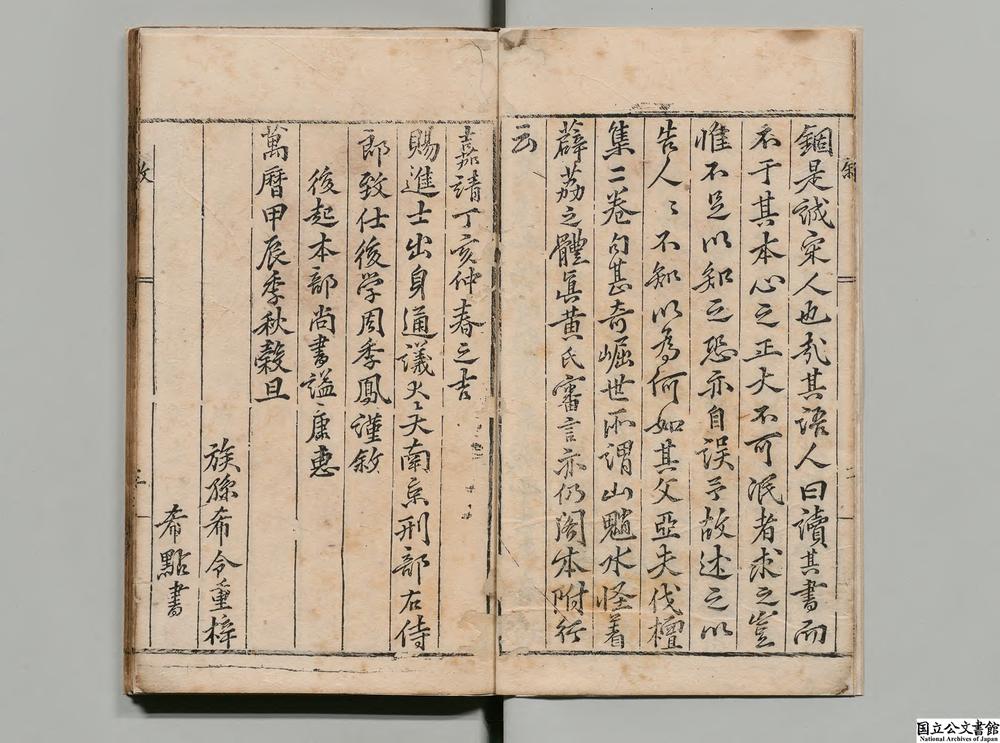 錮是誠宋人也哉其語人曰讀其書而
不于其本心之正大不可泯者求之豈
惟不足以知之恐亦自誤予故述之以
告人〻不知以為何如其父亞夫伐檀
集二卷句甚奇崛世所謂山魈水怪着
薜荔之體眞黄氏審言亦仍閣本附行
云
嘉靖丁亥仲春之吉
賜進士出身通議大夫南京刑部右侍
郎致仕後学周季鳳謹敘
後起本部尚書謚康惠
萬曆甲辰季秋穀旦
族孫希令重梓
希點書
敘
二
敘
三
国立公文書館
National Archives of Japan